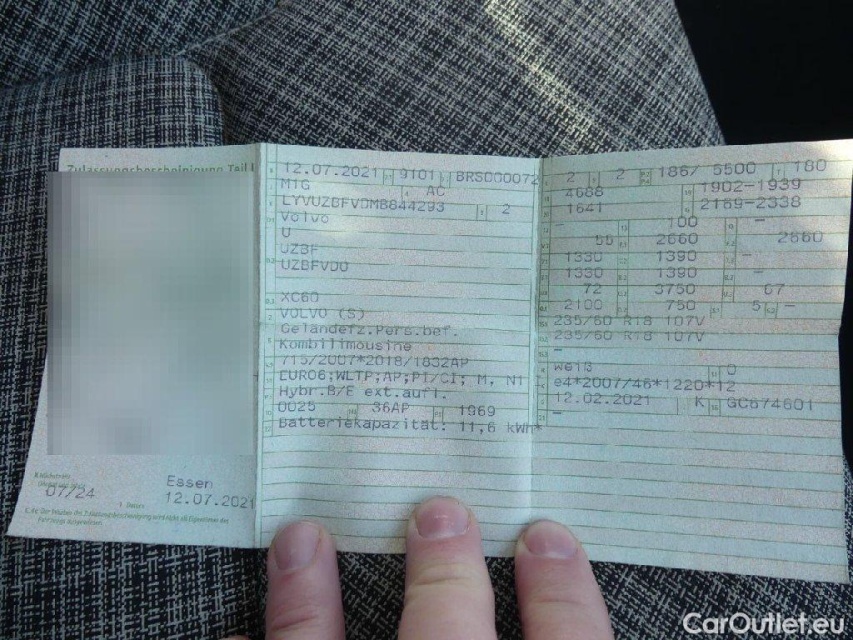 Zulassungsbescheinigung Teil I
07/24
Essen
12.07.2021
12.07.2021 9101 BRSD00072
M1G AC
LYVUZBFVDMB844293 2
Volvo
U
UZBF
UZBFVD0
XC60
VOLVO (S)
Geländefz.Pers.bef.
Kombilimousine
715/2007*2018/1832AP
EURO6;WLTP;AP;PI/CI; M, N1
Hybr.B/E ext.aufl.
0025 36AP 1969
Batteriekapazität: 11,6 kWh*
2 2 186/ 5500 180
4688 1902-1939
1641 2169-2338
- 100 -
55 2660 2660
1330 1390 -
1330 1390 -
72 3750 67
2100 750 5 -
235/60 R18 107V
235/60 R18 107V
-
weiß 0
e4*2007/46*1220*12
12.02.2021 K GC674601
CarOutlet.eu